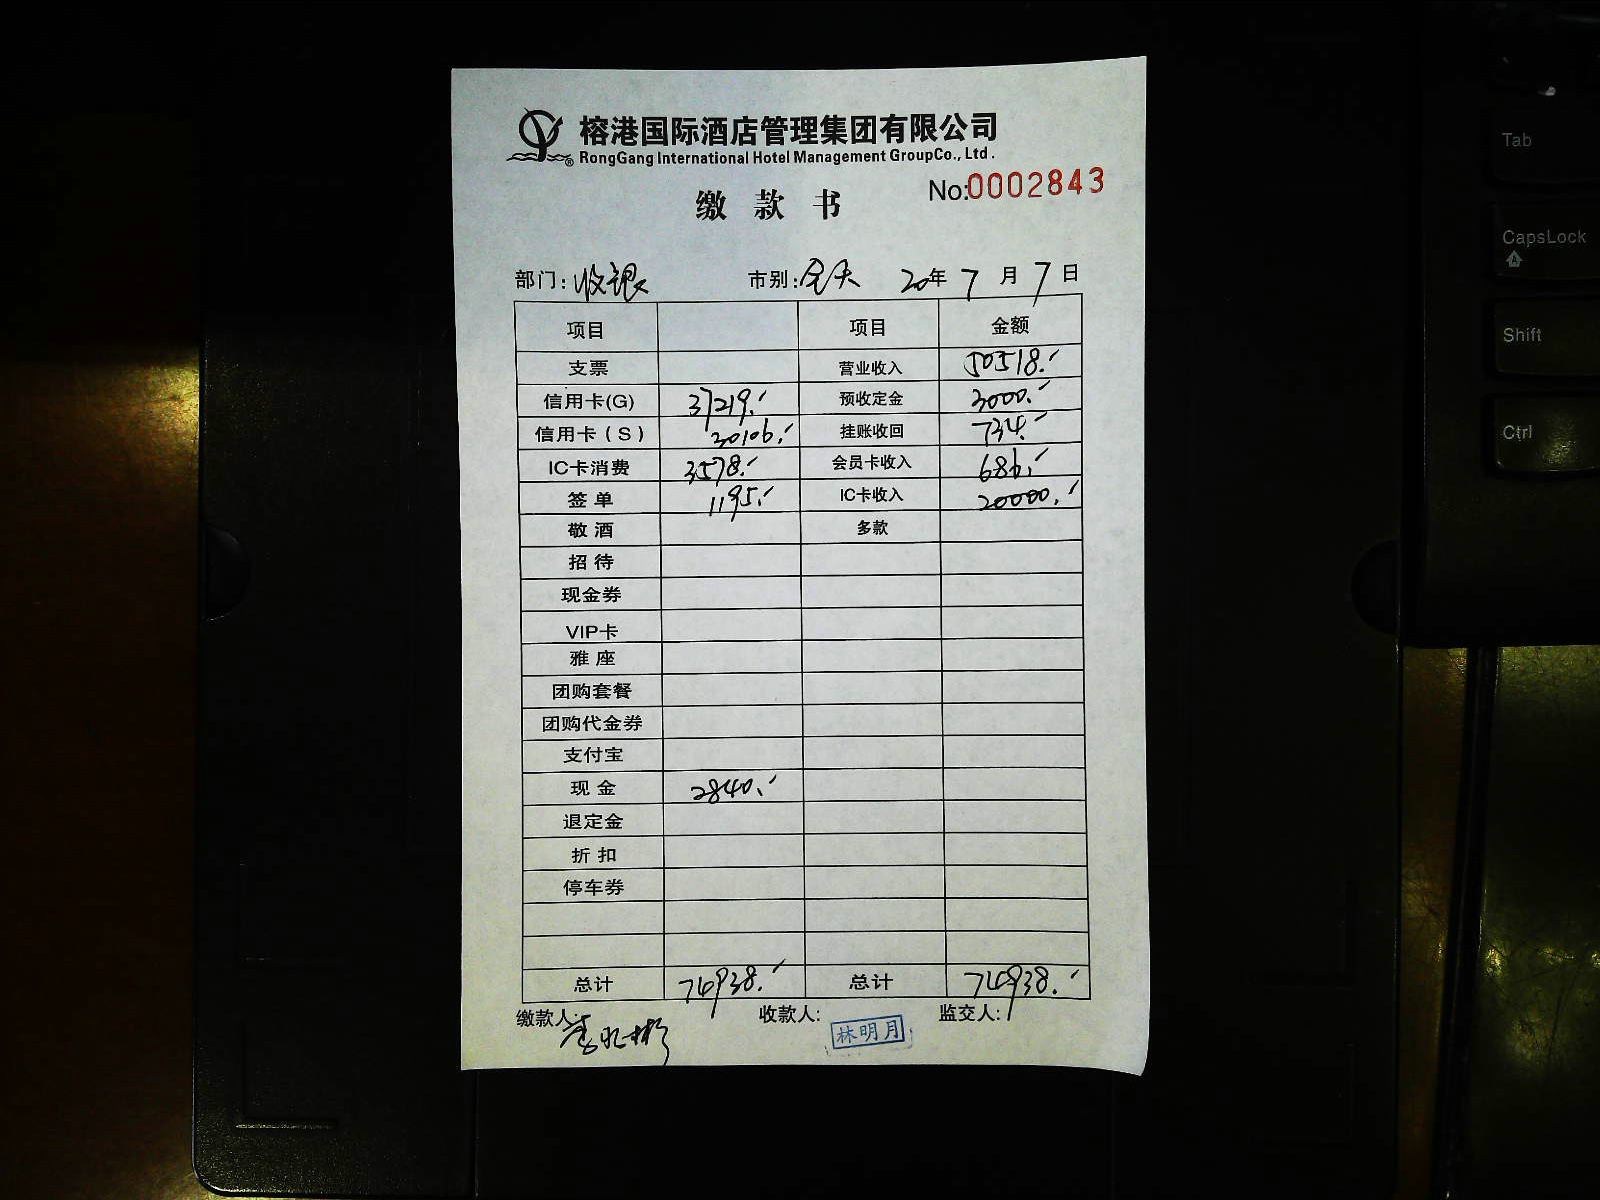 榕港国际酒店管理集团有限公司
RongGang International Hotel Management GroupCo., Ltd.
缴款书 No:0002843
部门: 收银 市别: 全天 20年 7月 7日
项目 项目 金额
支票 营业收入 50518.-
信用卡(G) 37219.- 预收定金 3000.-
信用卡(S) 30106.- 挂账收回 734.-
IC卡消费 3578.- 会员卡收入 686.-
签单 1195.- IC卡收入 20000.-
敬酒 多款
招待
现金券
VIP卡
雅座
团购套餐
团购代金券
支付宝
现金 2840.-
退定金
折扣
停车券
总计 74938.- 总计 74938.-
缴款人: 收款人: 林明月 监交人:
Tab
CapsLock
Shift
Ctrl